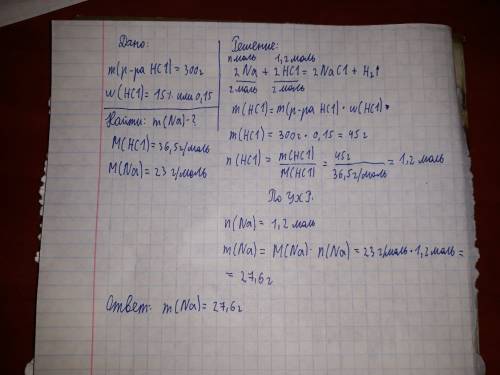 Дано:
m(р-ра HCl) = 300г
w(HCl) = 15% или 0,15
Найти: m(Na)-?
M(HCl) = 36,5г/моль
M(Na) = 23 г/моль
Решение:
n моль 1,2 моль
2Na + 2HCl = 2NaCl + H₂↑
2 моль 2 моль
m(HCl) = m(р-ра HCl) · w(HCl)
m(HCl) = 300г · 0,15 = 45г
n(HCl) = m(HCl)/M(HCl) = 45г/36,5г/моль = 1,2 моль
По УХР.
n(Na) = 1,2 моль
m(Na) = M(Na) · n(Na) = 23 г/моль · 1,2 моль =
= 27,6 г
Ответ: m(Na) = 27,6г